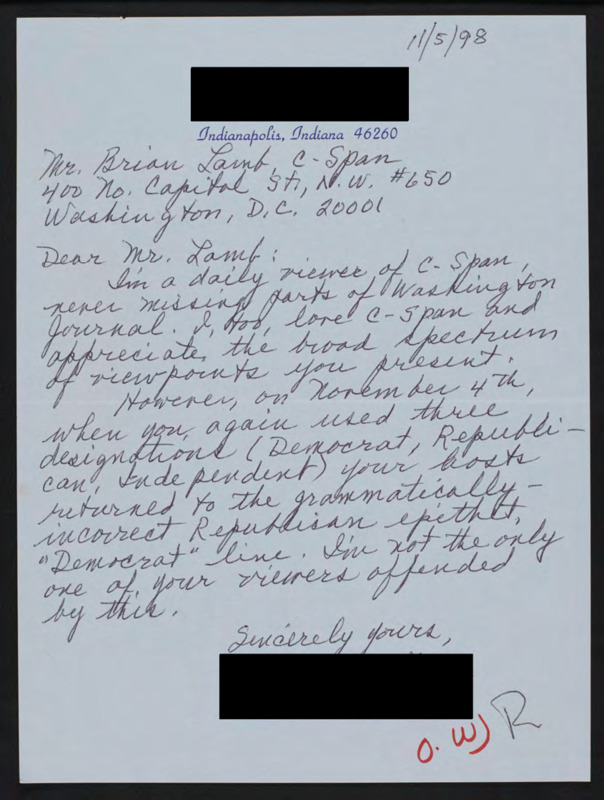 11/5/98
Indianapolis, Indiana 46260
Mr. Brian Lamb, C-Span
400 No. Capitol St., N.W. #650
Washington, D.C. 20001
Dear Mr. Lamb:
I'm a daily viewer of C-Span,
never missing parts of Washington
Journal. I, too, love C-Span and
appreciate the broad spectrum
of viewpoints you present.
However, on November 4th,
when you again used three
designations (Democrat, Republi-
can, Independent) your hosts
returned to the grammatically-
incorrect Republican epithet,
"Democrat" line. I'm not the only
one of your viewers offended
by this.
Sincerely yours,
O. WJ R